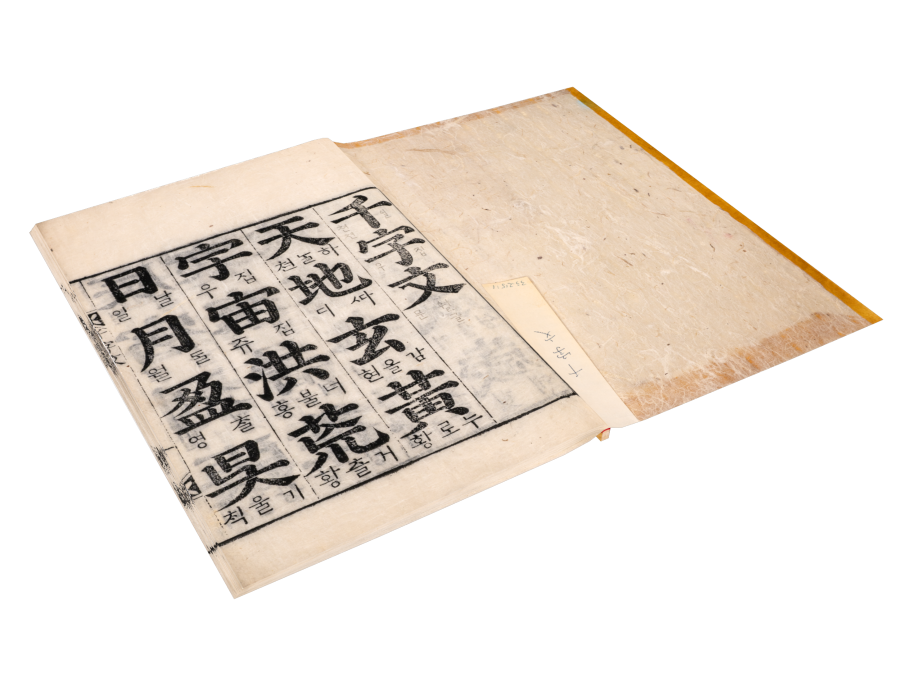 千字文
天 하ᄂᆞᆯ 천 地 ᄯᅡ 디 玄 감을 현 黃 누로 황
宇 집 우 宙 집 쥬 洪 너불 홍 荒 거츨 황
日 날 일 月 ᄃᆞᆯ 월 盈 ᄎᆞᆯ 영 昃 기울 척
千字文